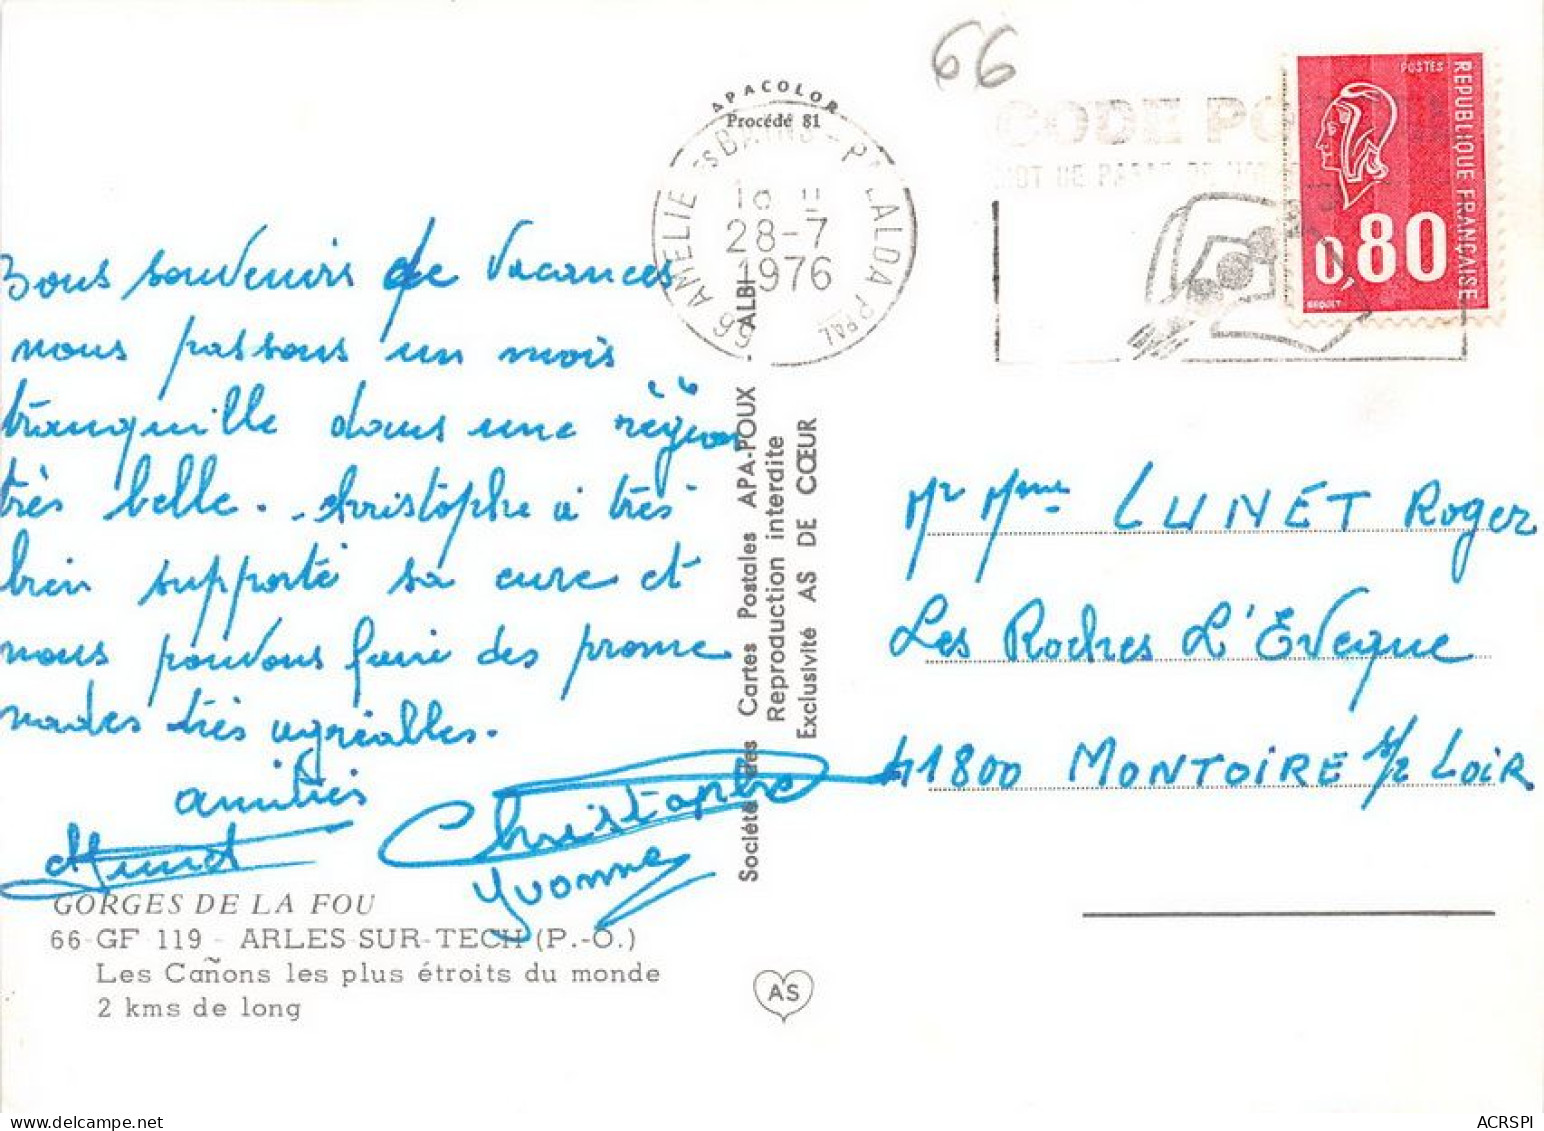 66
APACOLOR
Procédé 81
66 AMELIE LES BAINS - PALALDA PPAL
28-7
1976
CODE PO
MOT DE PASSE DE VO
POSTES
REPUBLIQUE FRANÇAISE
0,80
BEQUET
Bons souvenirs de Vacances
nous passons un mois
tranquille dans une région
très belle. Christophe a très
bien supporté sa cure et
nous pouvons faire des prome
nades très agréables.
amitiés
Christophe
Yvonne
Mr Mme LUNET Roger
Les Roches L'Eveque
41800 MONTOIRE s/ Loir
Société des Cartes Postales APA-POUX - ALBI
Reproduction interdite
Exclusivité AS DE CŒUR
GORGES DE LA FOU
66-GF 119 - ARLES-SUR-TECH (P.-O.)
Les Cañons les plus étroits du monde
2 kms de long
AS
delcampe.net
ACRSPI